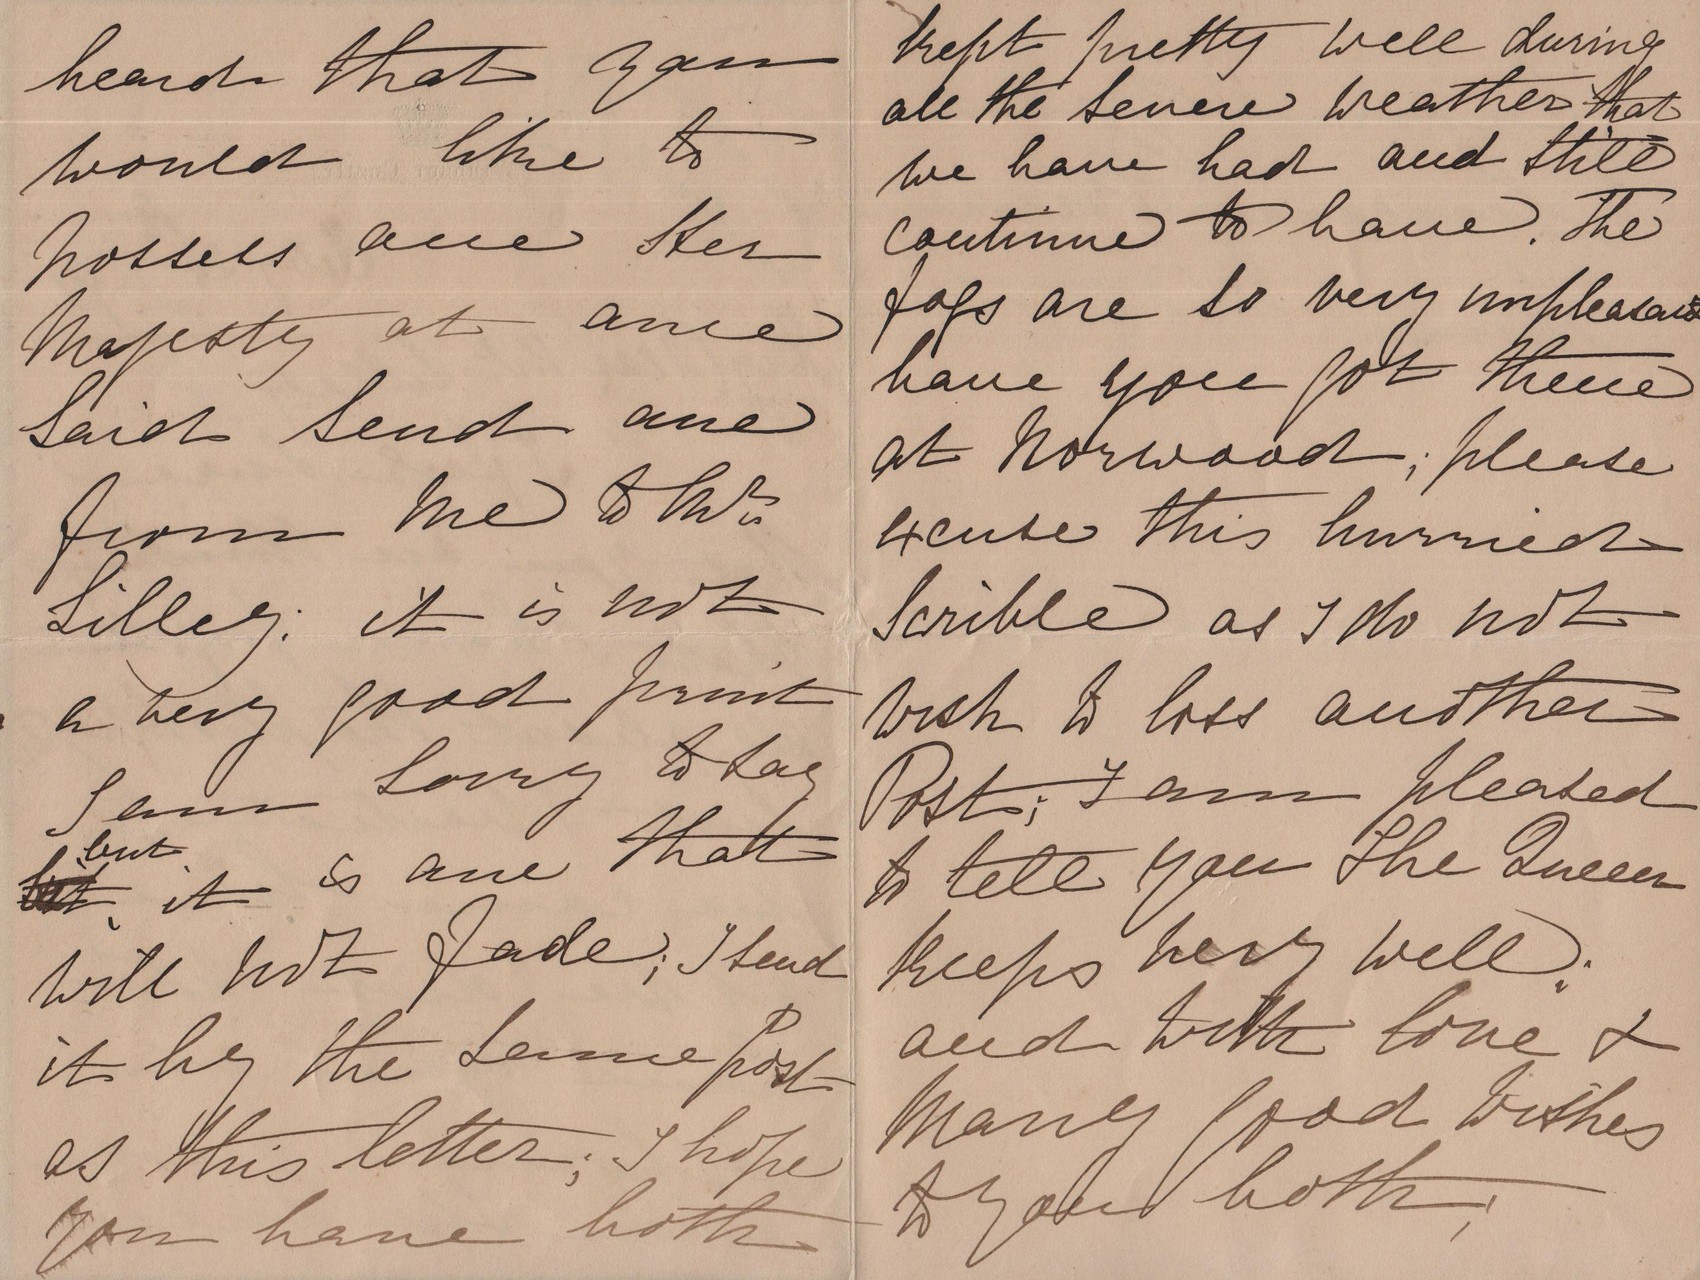 heard that you
would like to
possess one Her
Majesty at once
Said Send one
from Me to Mrs
Lilley; it is not
a very good print
I am sorry to say
but
it is one that
will not Fade; I send
it by the same Post
as this letter; I hope
you have both
kept pretty well during
all the severe weather that
we have had and still
continue to have. The
fogs are so very unpleasant
have you got them
at Norwood; please
excuse this hurried
Scrible as I do not
wish to loss another
Post; I am pleased
to tell you The Queen
keeps very well;
and with love &
Many good wishes
to you both;